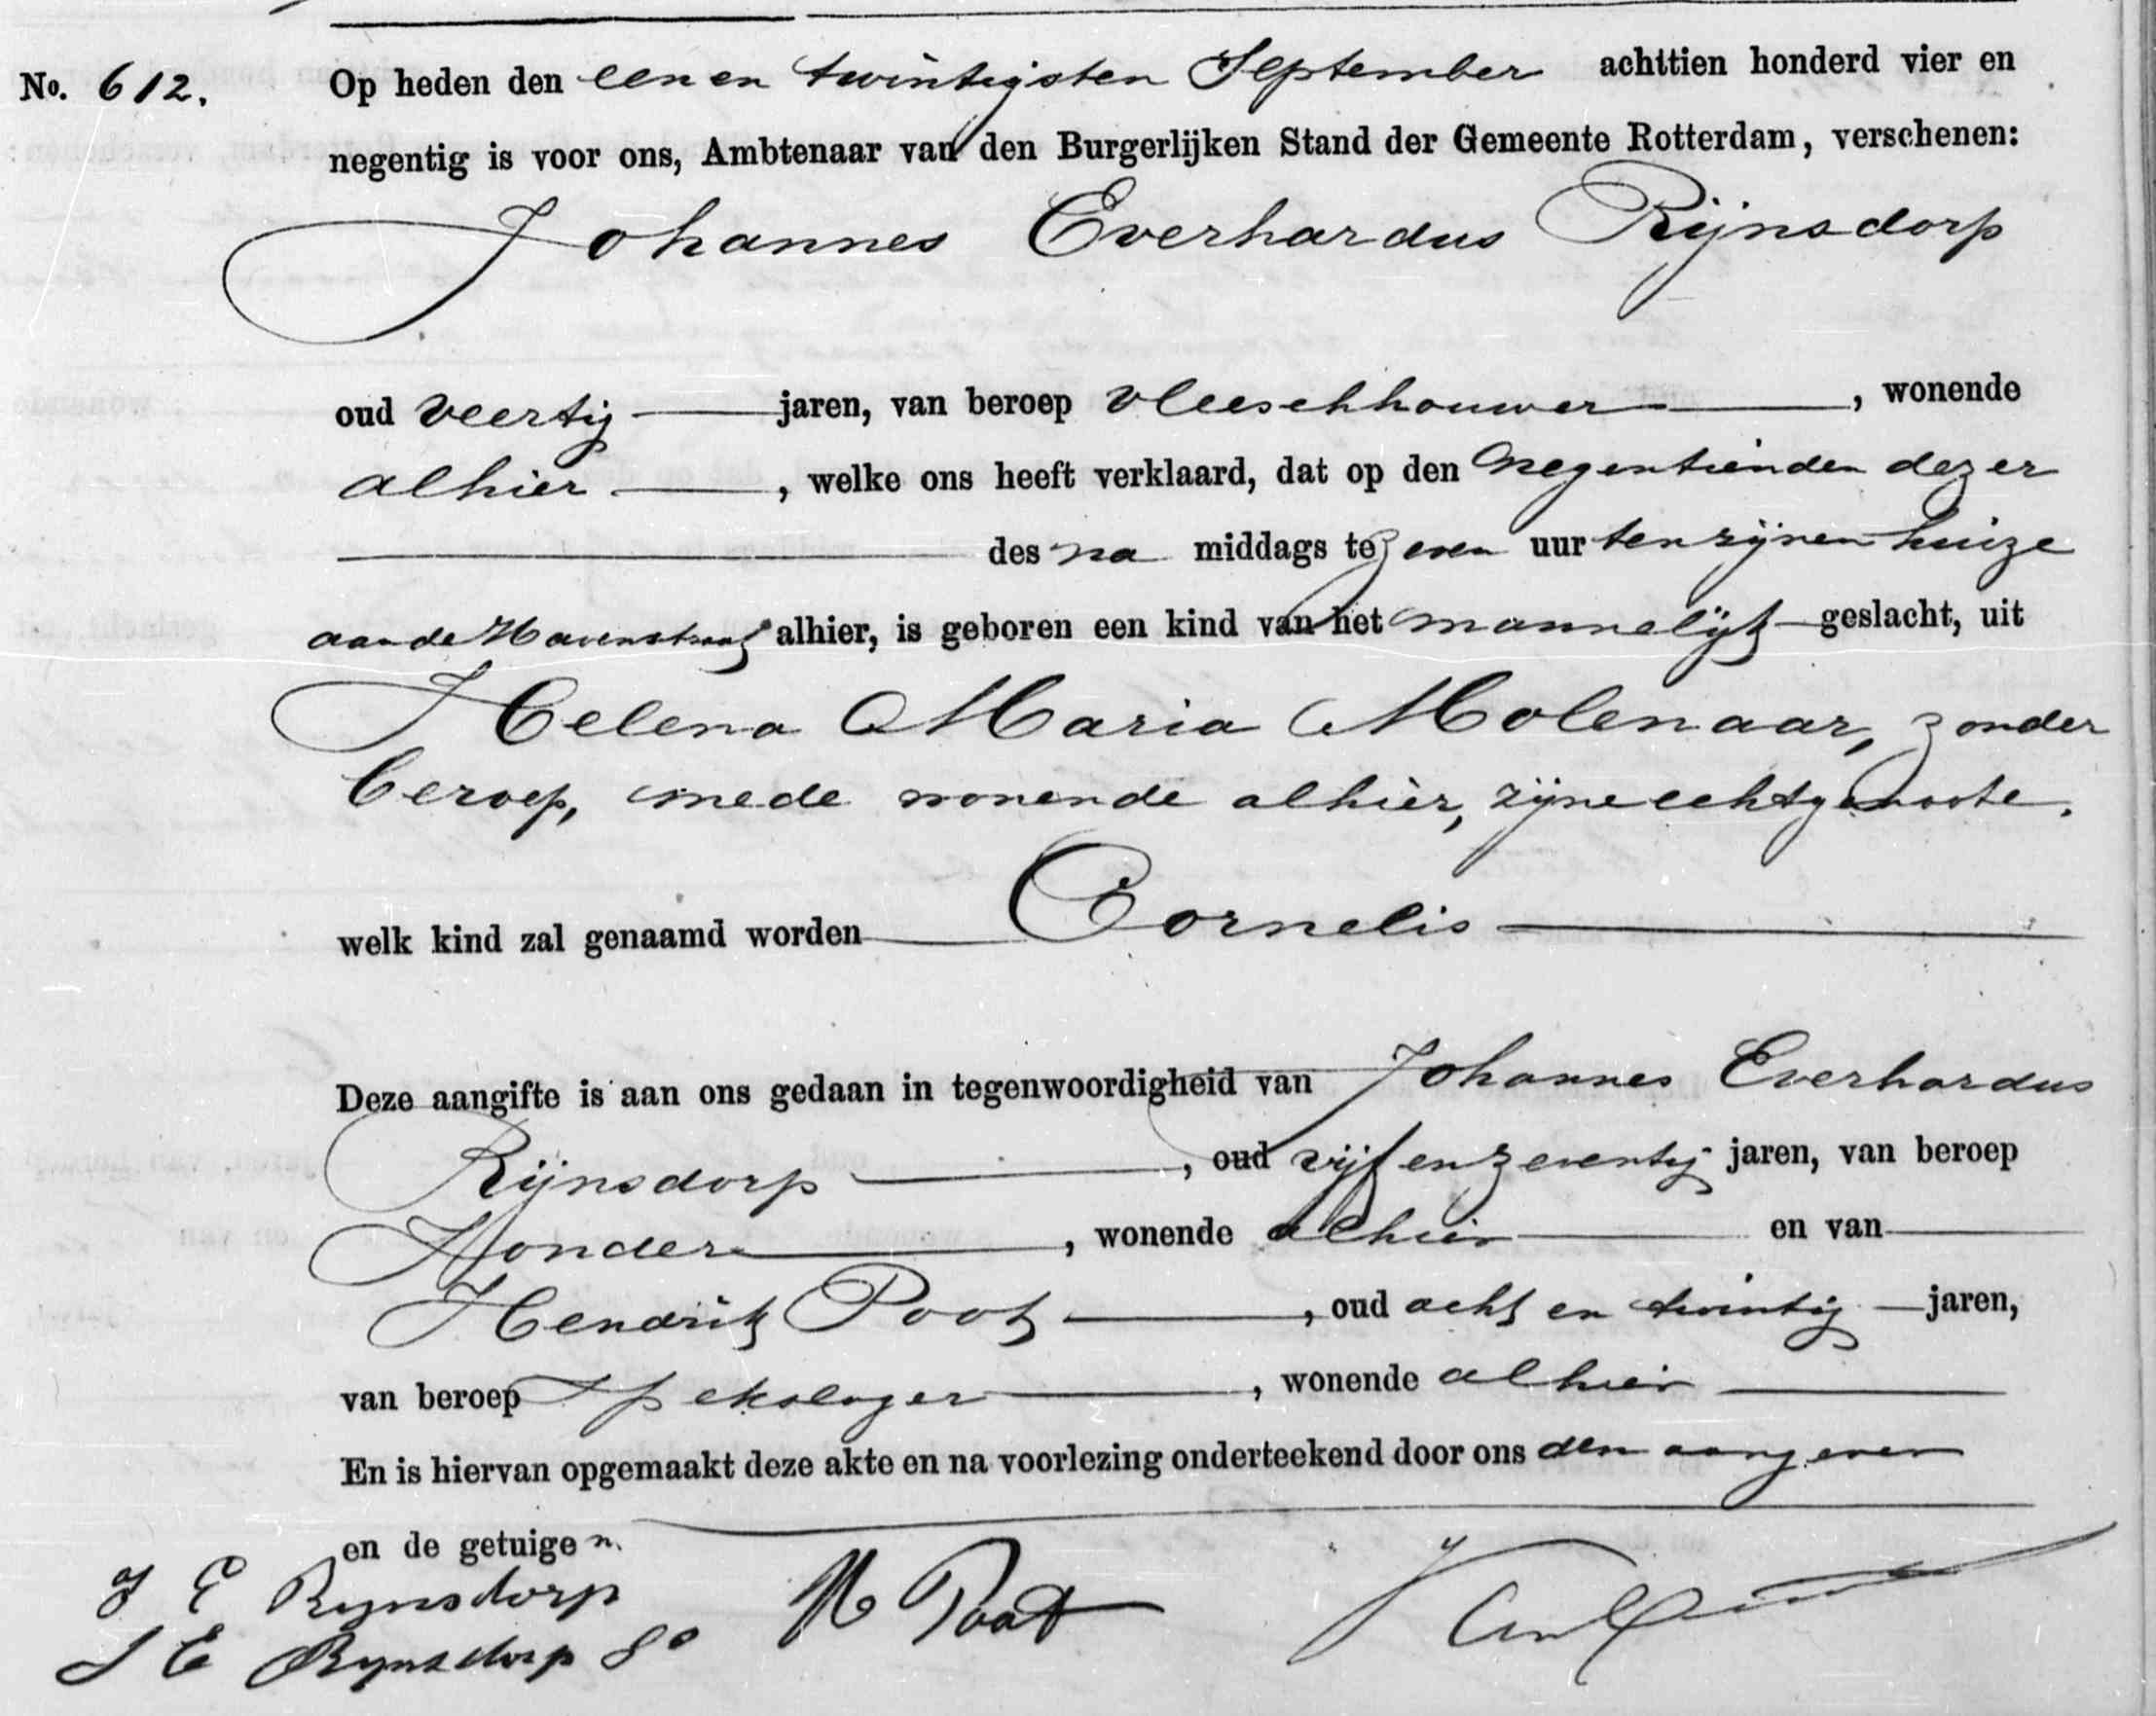 No. 612. Op heden den een en twintigsten September achttien honderd vier en
negentig is voor ons, Ambtenaar van den Burgerlijken Stand der Gemeente Rotterdam, verschenen:
Johannes Everhardus Rijnsdorp
oud veertig jaren, van beroep vleeschhouwer, wonende
alhier, welke ons heeft verklaard, dat op den negentienden dezer
des na middags te zeven uur ten zijnen huize
aan de Havenstraat alhier, is geboren een kind van het mannelijk geslacht, uit
Helena Maria Molenaar, zonder
beroep, mede wonende alhier, zijne echtgenoote.
welk kind zal genaamd worden Cornelis
Deze aangifte is aan ons gedaan in tegenwoordigheid van Johannes Everhardus
Rijnsdorp, oud vijf en zeventig jaren, van beroep
Zonder, wonende alhier en van
Hendrik Poot, oud acht en twintig jaren,
van beroep spekslager, wonende alhier
En is hiervan opgemaakt deze akte en na voorlezing onderteekend door ons den aangever
en de getuigen.
J E Rynsdorp H Poot
J E Rynsdorp